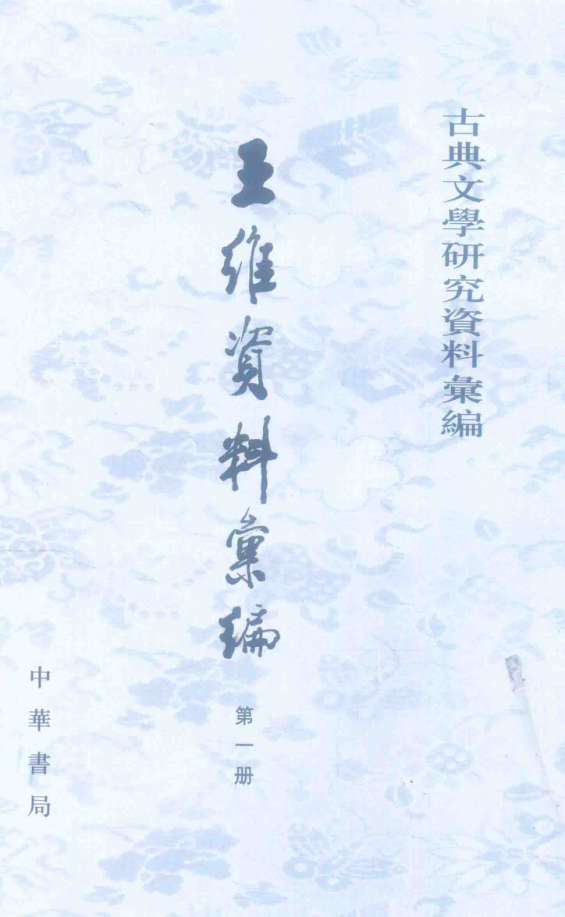 古典文學研究資料彙編
王維資料彙編
第一册
中華書局